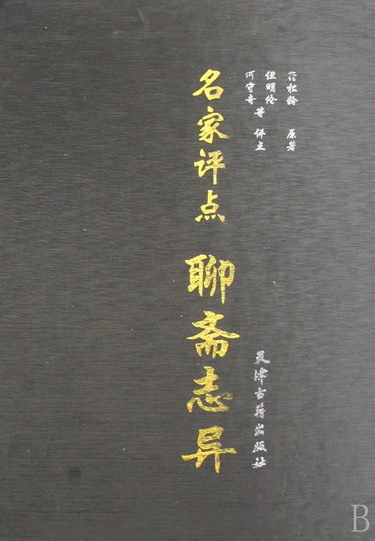 蒲松龄 原著
但明伦
何守奇 等 评点
名家评点
聊斋志异
天津古籍出版社
B